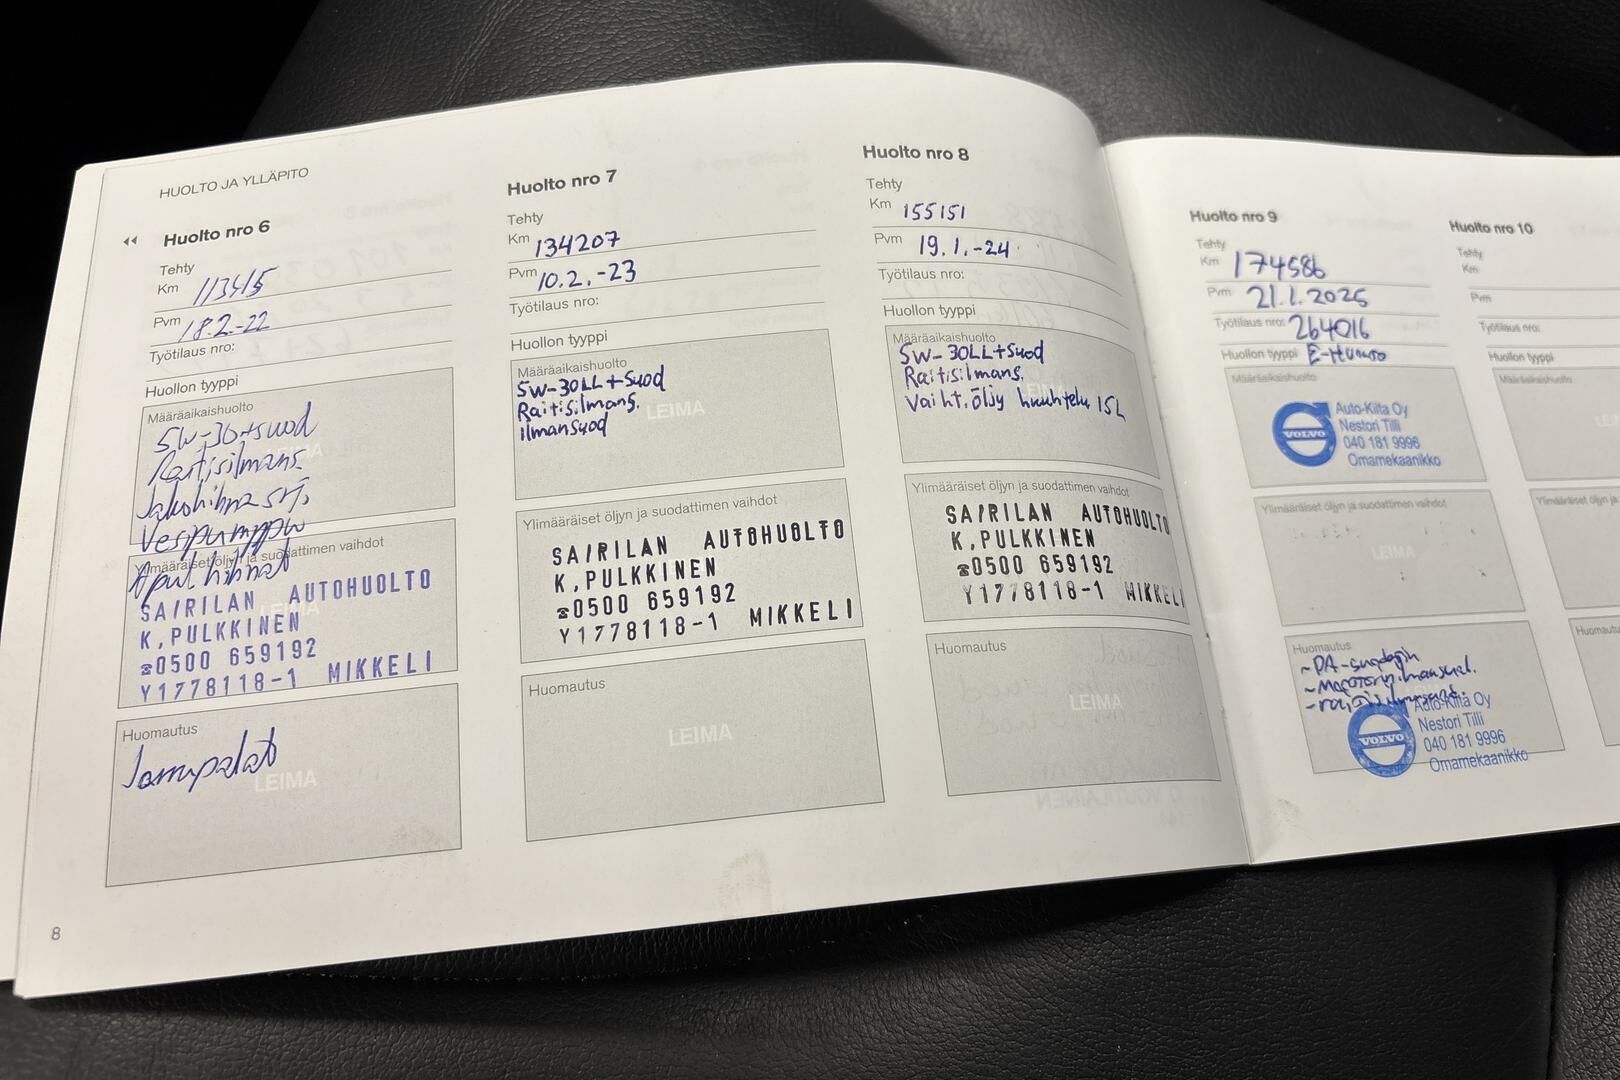 HUOLTO JA YLLÄPITO
Huolto nro 6
Tehty
Km 113415
Pvm 18.2.-22
Työtilaus nro:
Huollon tyyppi
Määräaikaishuolto
5W-30+suod
Raitisilmans.
Jakohihna srj,
Vesipumppu
Ylimääräiset öljyn ja suodattimen vaihdot
Apul hihnat
SAIRILAN AUTOHUOLTO
K,PULKKINEN
☎0500 659192
Y1778118-1 MIKKELI
Huomautus
Jarrupalat
LEIMA
8
Huolto nro 7
Tehty
Km 134207
Pvm 10.2.-23
Työtilaus nro:
Huollon tyyppi
Määräaikaishuolto
5W-30LL+Suod
Raitisilmans.
LEIMA
ilmansuod
Ylimääräiset öljyn ja suodattimen vaihdot
SAIRILAN AUTOHUOLTO
K,PULKKINEN
☎0500 659192
Y1778118-1 MIKKELI
Huomautus
LEIMA
Huolto nro 8
Tehty
Km 155151
Pvm 19.1.-24
Työtilaus nro:
Huollon tyyppi
Määräaikaishuolto
5W-30LL+Suod
Raitisilmans.
Vaiht.öljy huuhtelu 15L
Ylimääräiset öljyn ja suodattimen vaihdot
SAIRILAN AUTOHUOLTO
K,PULKKINEN
☎0500 659192
Y1778118-1 MIKKELI
Huomautus
LEIMA
Huolto nro 9
Tehty
Km 174586
Pvm 21.1.2025
Työtilaus nro: 264016
Huollon tyyppi E-Huolto
Määräaikaishuolto
VOLVO
Auto-Kilta Oy
Nestori Tilli
040 181 9996
Omamekaanikko
Ylimääräiset öljyn ja suodattimen vaihdot
LEIMA
Huomautus
-PA-suodatin
VOLVO
Auto-Kilta Oy
Nestori Tilli
040 181 9996
Omamekaanikko
Huolto nro 10
Tehty
Km
Pvm
Työtilaus nro:
Huollon tyyppi
Määräaikaishuolto
Ylimääräiset öljyn ja